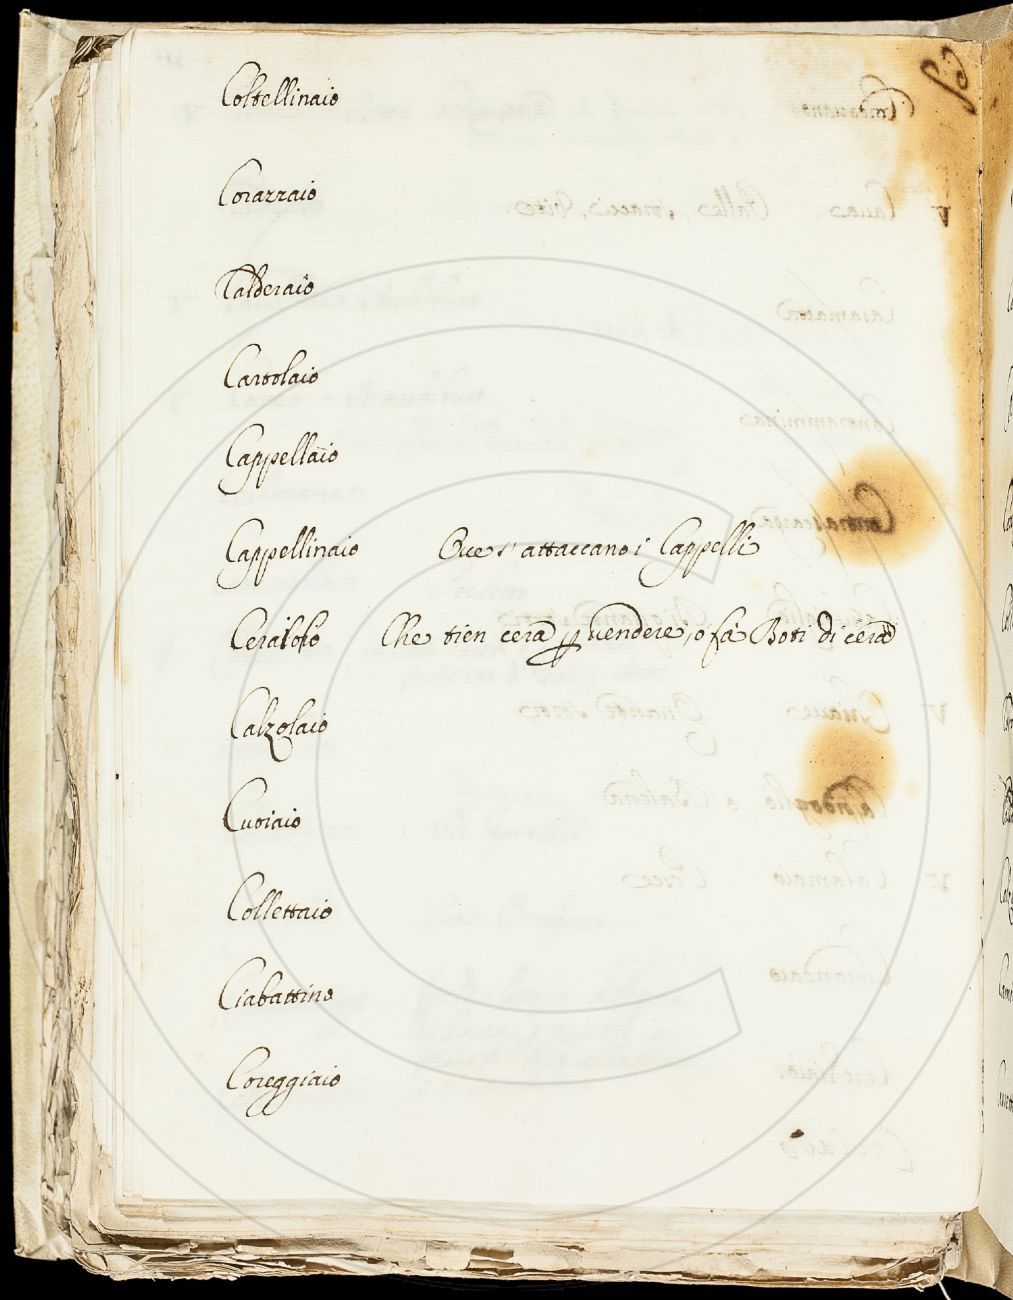 Coltellinaio
Corazzaio
Calderaio
Cartolaio
Cappellaio
Cappellinaio Oue s' attaccano i Cappelli
Ceraiolo Che tien cera p uendere, o fà Boti di cera
Calzolaio
Cuoiaio
Collettaio
Ciabattino
Coreggiaio